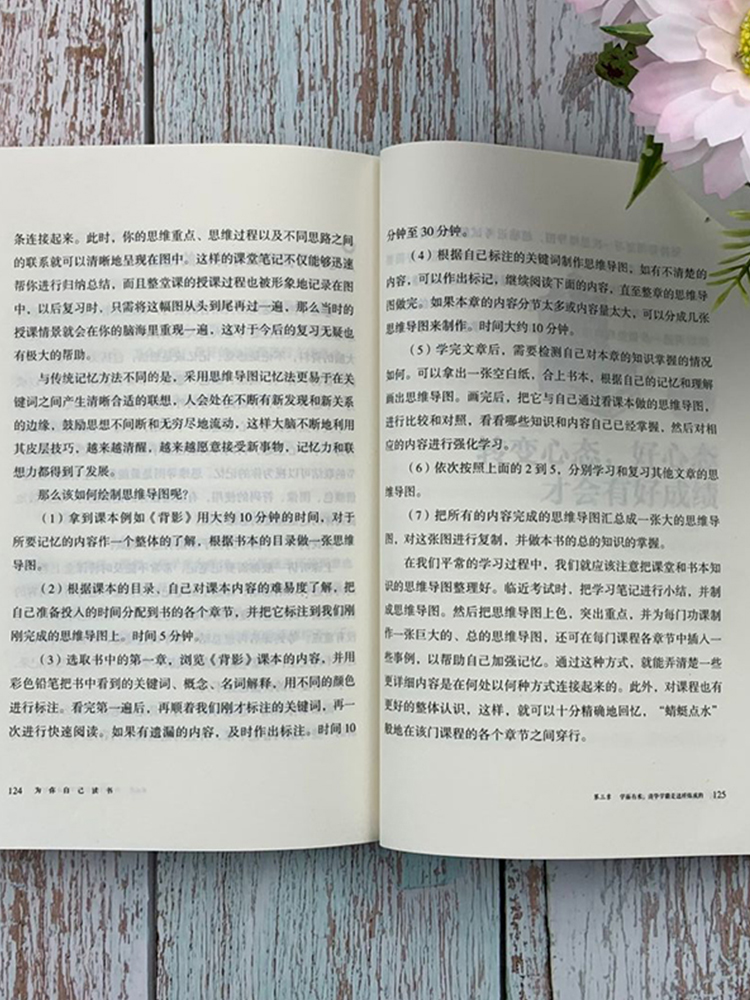 条连接起来。此时，你的思维重点、思维过程以及不同思路之间
的联系就可以清晰地呈现在图中。这样的课堂笔记不仅能够迅速
帮你进行归纳总结，而且整堂课的授课过程也被形象地记录在图
中，以后复习时，只需将这幅图从头到尾再过一遍，那么当时的
授课情景就会在你的脑海里重现一遍，这对于今后的复习无疑也
有极大的帮助。
与传统记忆方法不同的是，采用思维导图记忆法更易于在关
键词之间产生清晰合适的联想，人会处在不断有新发现和新关系
的边缘，鼓励思想不间断和无穷尽地流动，这样大脑不断地利用
其皮层技巧，越来越清醒，越来越愿意接受新事物，记忆力和联
想力都得到了发展。
那么该如何绘制思维导图呢？
（1）拿到课本例如《背影》用大约10分钟的时间，对于
所要记忆的内容作一个整体的了解，根据书本的目录做一张思维
导图。
（2）根据课本的目录、自己对课本内容的难易度了解，把
自己准备投入的时间分配到书的各个章节，并把它标注到我们刚
刚完成的思维导图上。时间5分钟。
（3）选取书中的第一章，浏览《背影》课本的内容，并用
彩色铅笔把书中看到的关键词、概念、名词解释，用不同的颜色
进行标注。看完第一遍后，再顺着我们刚才标注的关键词，再一
次进行快速阅读。如果有遗漏的内容，及时作出标注。时间10
124 为你自己读书
分钟至30分钟。
（4）根据自己标注的关键词制作思维导图，如有不清楚的
内容，可以作出标记，继续阅读下面的内容，直至整章的思维导
图做完。如果本章的内容分节太多或内容量太大，可以分成几张
思维导图来制作。时间大约10分钟。
（5）学完文章后，需要检测自己对本章的知识掌握的情况
如何。可以拿出一张空白纸，合上书本，根据自己的记忆和理解
画出思维导图。画完后，把它与自己通过看课本做的思维导图，
进行比较和对照，看看哪些知识和内容自己已经掌握，然后对相
应的内容进行强化学习。
（6）依次按照上面的2到5，分别学习和复习其他文章的思
维导图。
（7）把所有的内容完成的思维导图汇总成一张大的思维导
图，对这张图进行复制，并做本书的总的知识的掌握。
在我们平常的学习过程中，我们就应该注意把课堂和书本知
识的思维导图整理好。临近考试时，把学习笔记进行小结，并制
成思维导图。然后把思维导图上色，突出重点，并为每门功课制
作一张巨大的、总的思维导图，还可在每门课程各章节中插入一
些事例，以帮助自己加强记忆。通过这种方式，就能弄清楚一些
更详细内容是在何处以何种方式连接起来的。此外，对课程也有
更好的整体认识，这样，就可以十分精确地回忆，“蜻蜓点水”
般地在该门课程的各个章节之间穿行。
第三章 学霸有术：清华学霸是这样炼成的 125